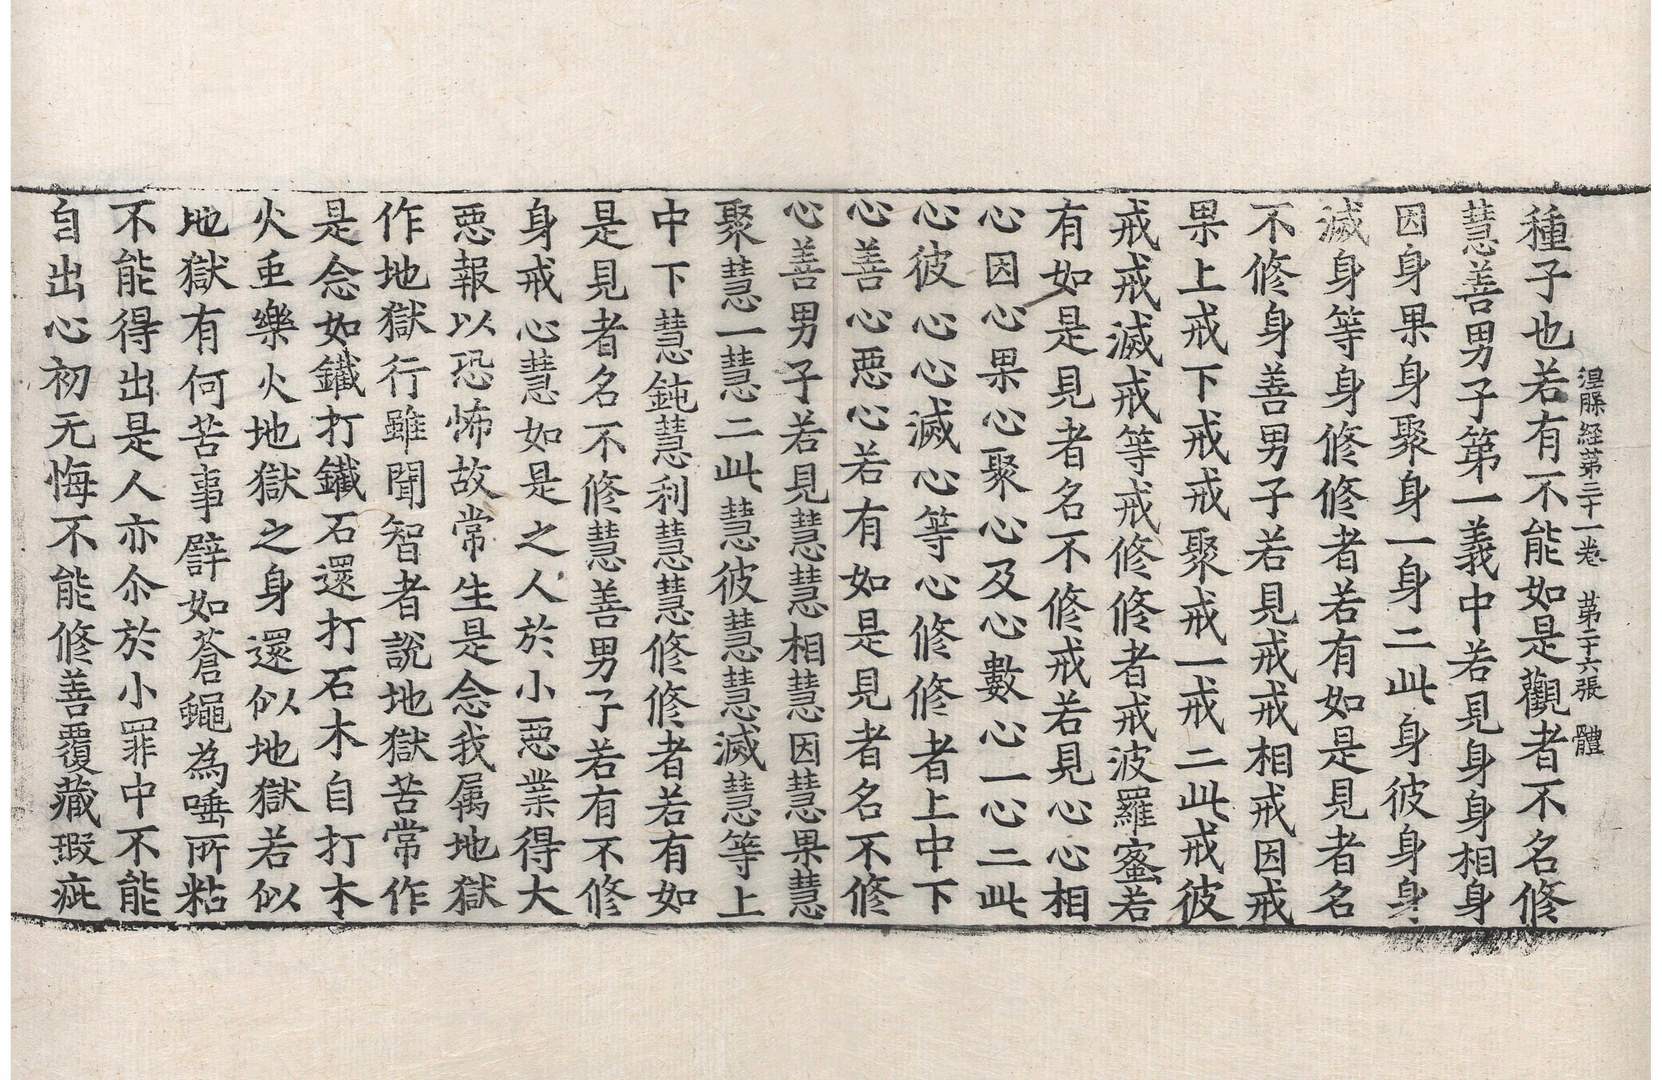 涅槃経第三十一卷 第二十六張 體
種子也若有不能如是觀者不名修
慧善男子第一義中若見身身相身
因身果身聚身一身二此身彼身身
滅身等身修修者若有如是見者名
不修身善男子若見戒戒相戒因戒
果上戒下戒戒聚戒一戒二此戒彼
戒戒滅戒等戒修修者戒波羅蜜若
有如是見者名不修戒若見心心相
心因心果心聚心及心數心一心二此
心彼心心滅心等心修修者上中下
心善心惡心若有如是見者名不修
心善男子若見慧慧相慧因慧果慧
聚慧一慧二此慧彼慧慧滅慧等上
中下慧鈍慧利慧慧修修者若有如
是見者名不修慧善男子若有不修
身戒心慧如是之人於小惡業得大
惡報以恐怖故常生是念我属地獄
作地獄行雖聞智者說地獄苦常作
是念如鐵打鐵石還打石木自打木
火虫樂火地獄之身還似地獄若似
地獄有何苦事譬如蒼蠅為唾所粘
不能得出是人亦尒於小罪中不能
自出心初无悔不能修善覆藏瑕疵